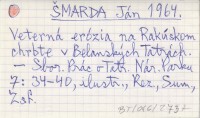 ŠMARDA Ján 1964.
Veterná erózia na Rakúskom
chrbte v Belanských Tatrách.
— Sbor. Prác o Tatr. Nár. Parku
7: 34-40, ilustr., Rez., Sum.,